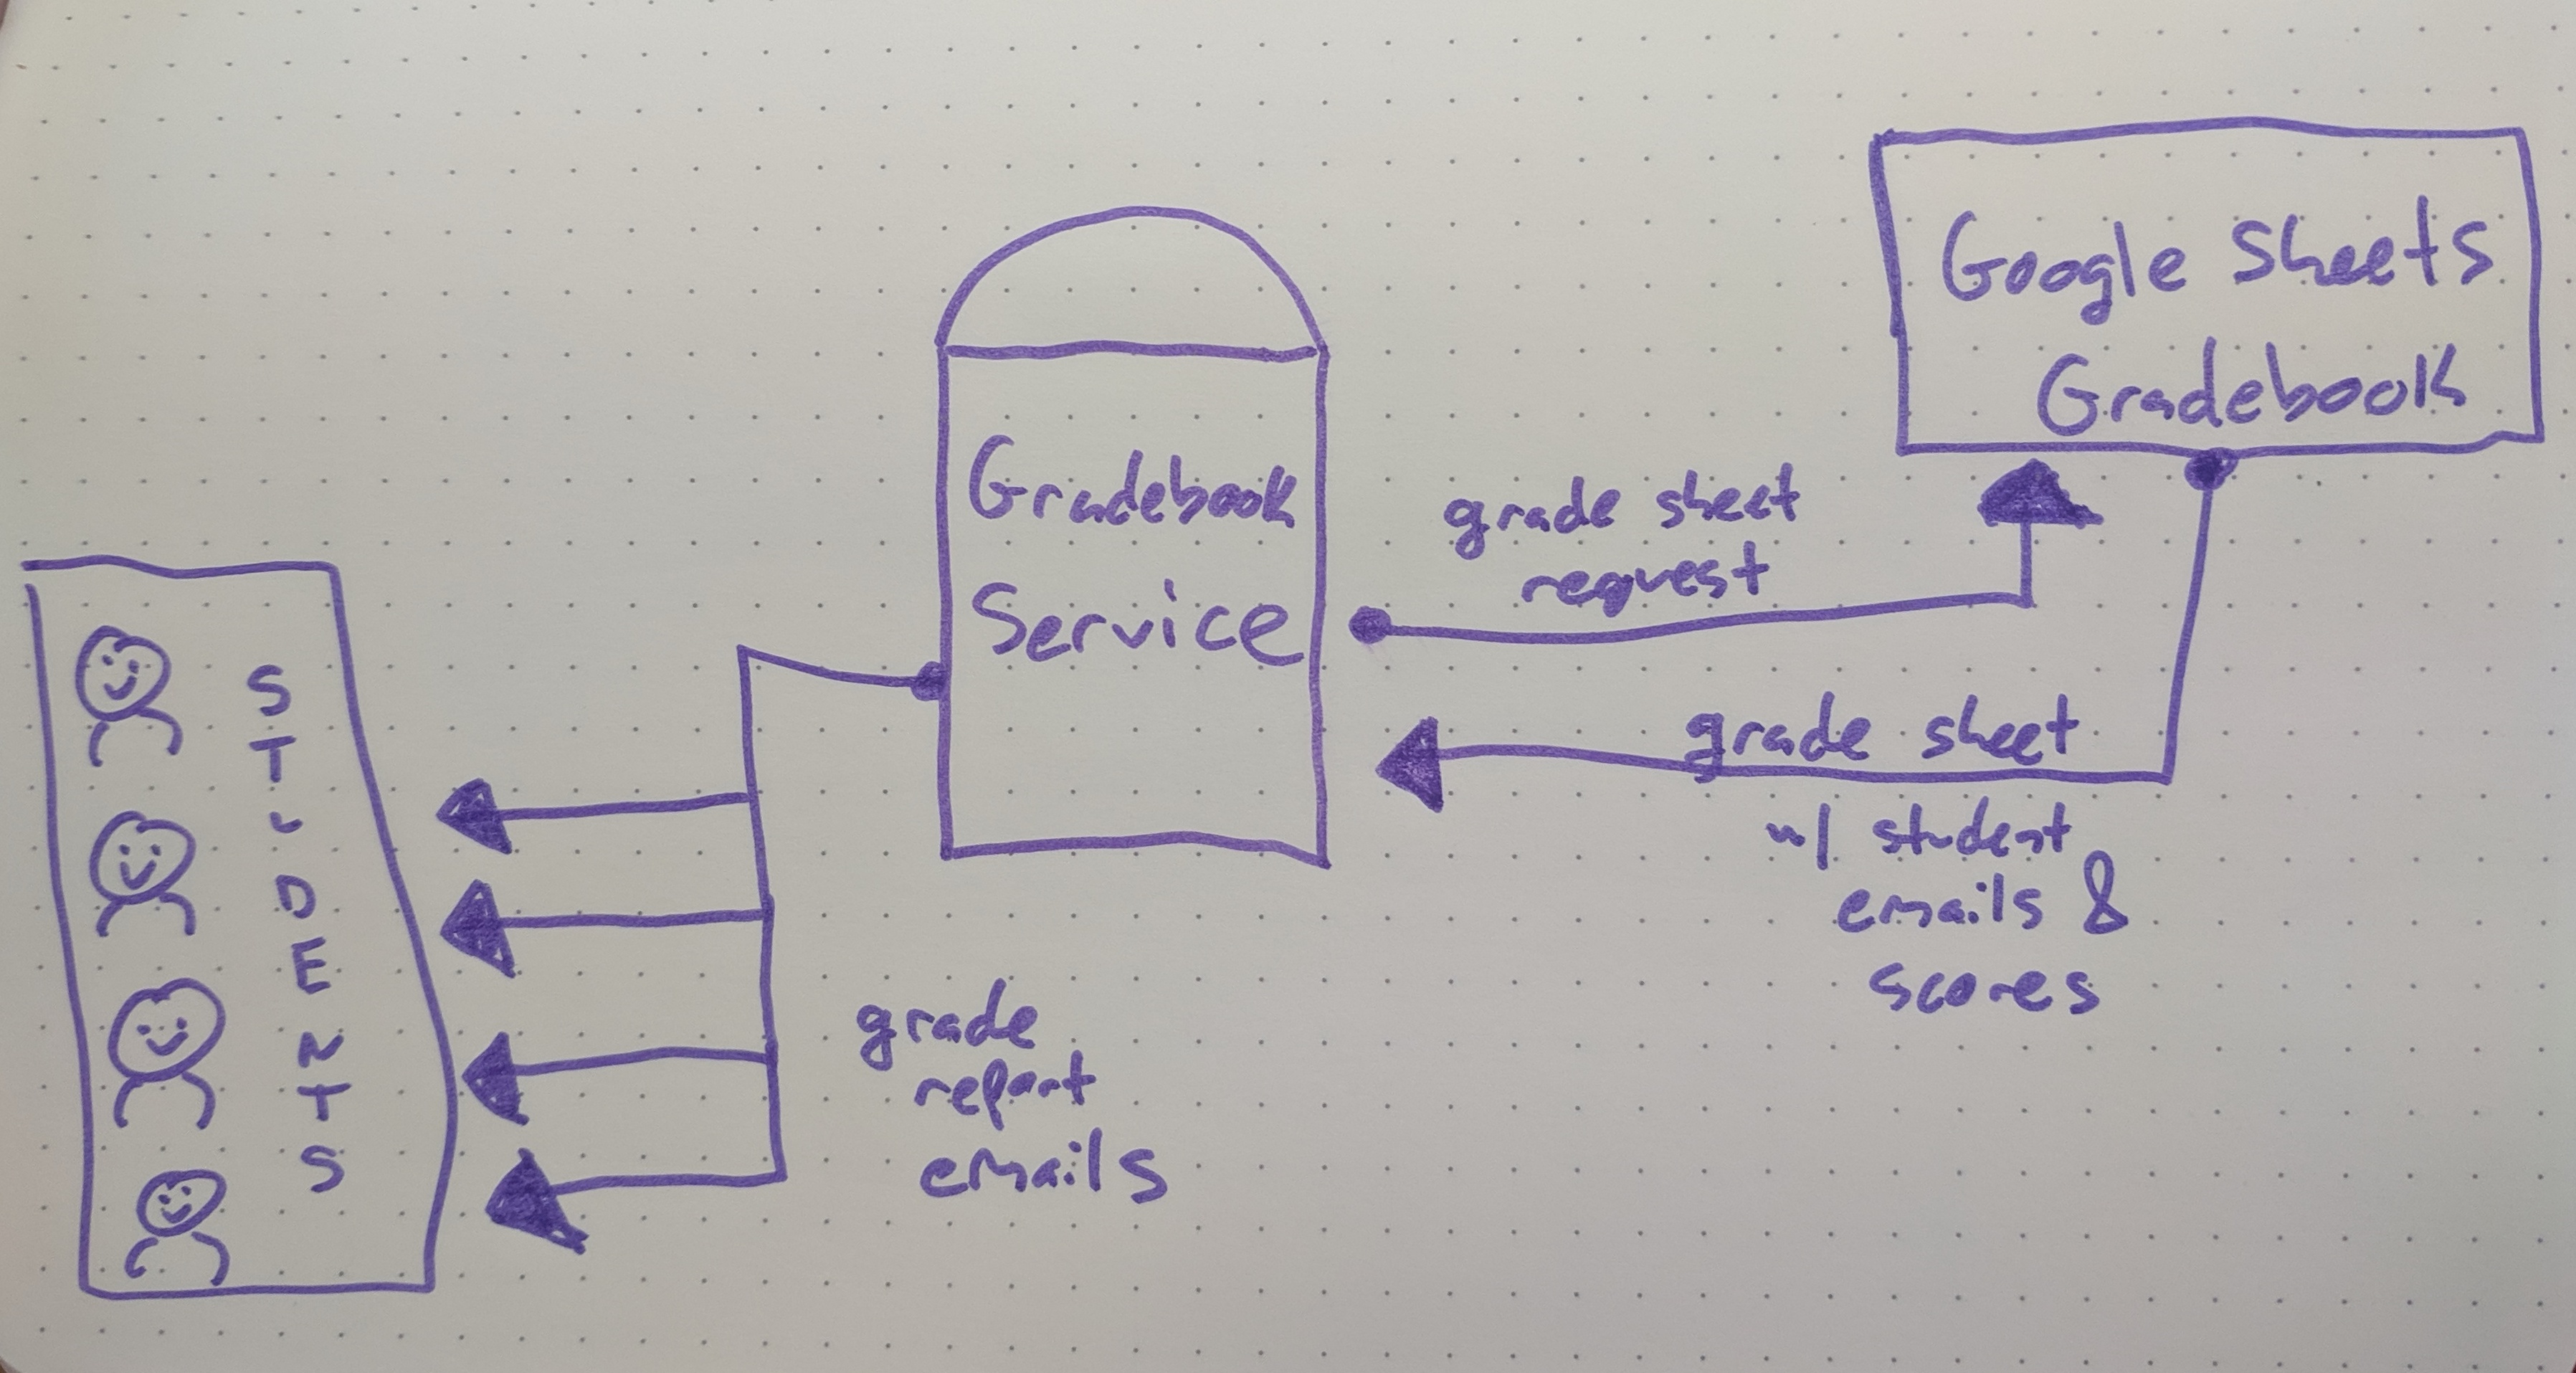 Google Sheets
Gradebook
Gradebook
Service
grade sheet
request
grade sheet
w/ student
emails &
scores
STUDENTS
grade
report
emails